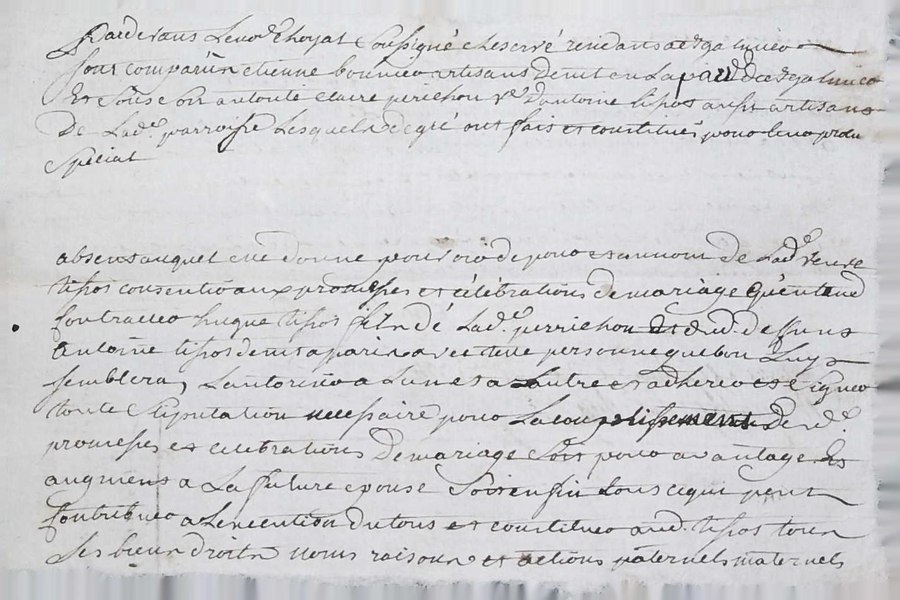 Pardevans Le no.re Choyat Soussigné et reservé rendans a st galmier
sont comparûn etienne bonnier artisans demt en La par. de st galmier
Et Sous son autorité claire perichon v.e d'antoine tipos aussi artisans
De Lad.e parroisse Lesquels de gré ont fais et constitué pour leur procu
Special
absens auquel ene donne pouvoir de pour et au nom de Lad.e veuve
tipos consentir aux promesses et célébrations de mariage qu'entend
Contracter huque tipos fils dé Lad.e perrichon Et dud. deffuns
Antoine tipos demt a paris avec telle personne que bon Luy
semblera, L'autoriser a L'un et a L'autre et adherer et signer
toute Stipulation necessaire pour L'acomplissement De sd.
promesses et celebrations De mariage Soit pour avantage Et
augmens a La future epouse Soit enfin tous ce qui peut
Contribuer a L'execution du tous et constituer aud. tipos tous
Ses biens droits noms raisons et actions paternels maternels